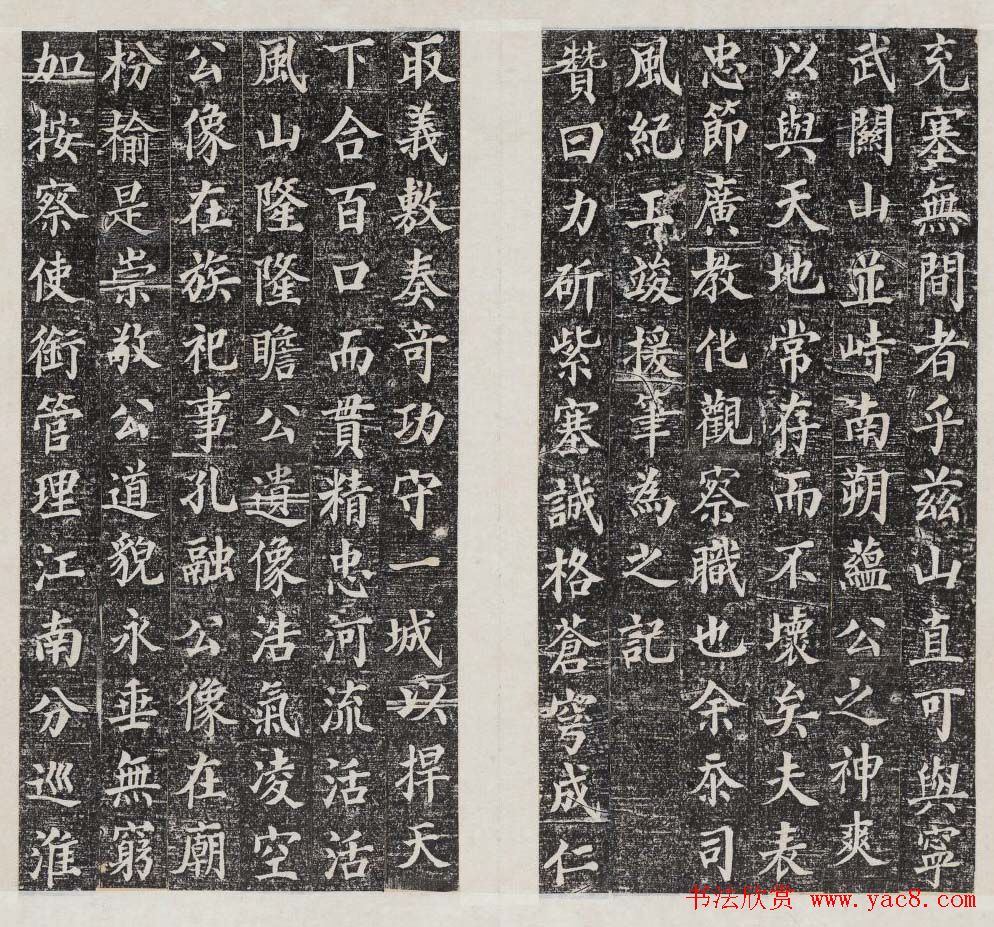 充塞無間者乎茲山直可與寧
武關山並峙南朔蘊公之神爽
以與天地常存而不壞矣夫表
忠節廣教化觀察職也余忝司
風紀工竣援筆為之記
贊曰力斫紫塞誠格蒼穹成仁
取義敷奏竒功守一城以捍天
下合百口而貫精忠河流活活
風山隆隆瞻公遺像浩氣凌空
公像在族祀事孔融公像在廟
枌榆是崇敬公道貌永垂無窮
加按察使銜管理江南分巡淮
书法欣赏 www.yac8.com